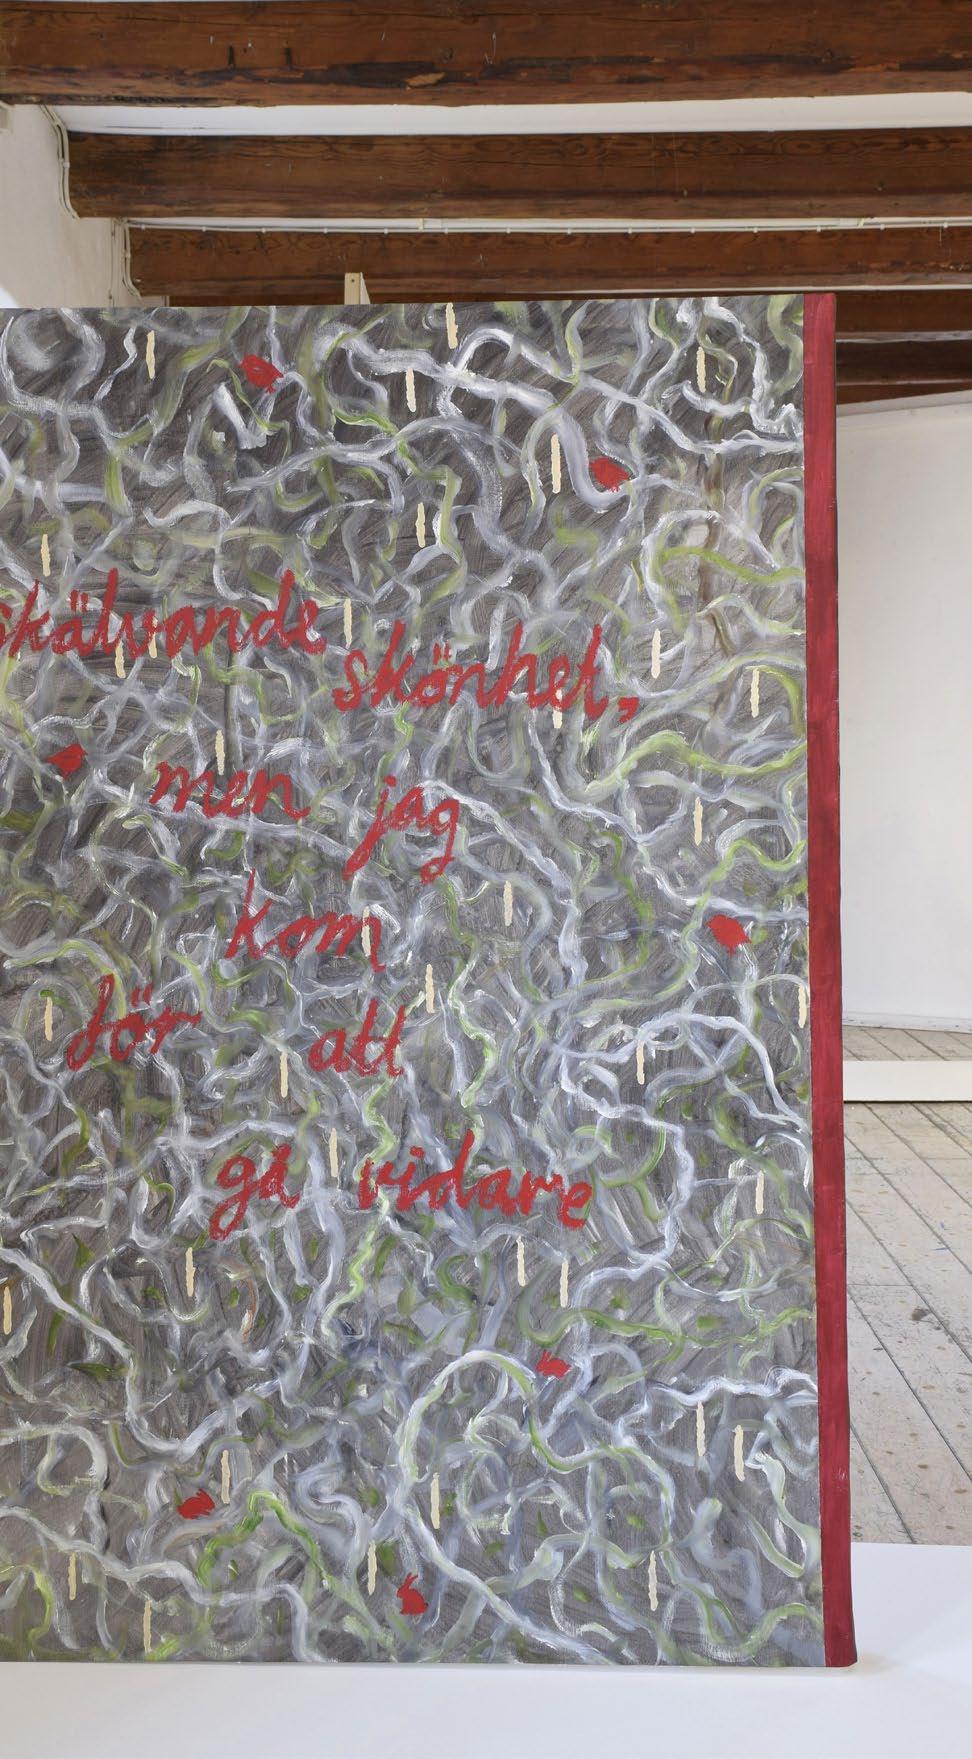 skälvande
skönhet,
men jag
kom
för att
gå vidare